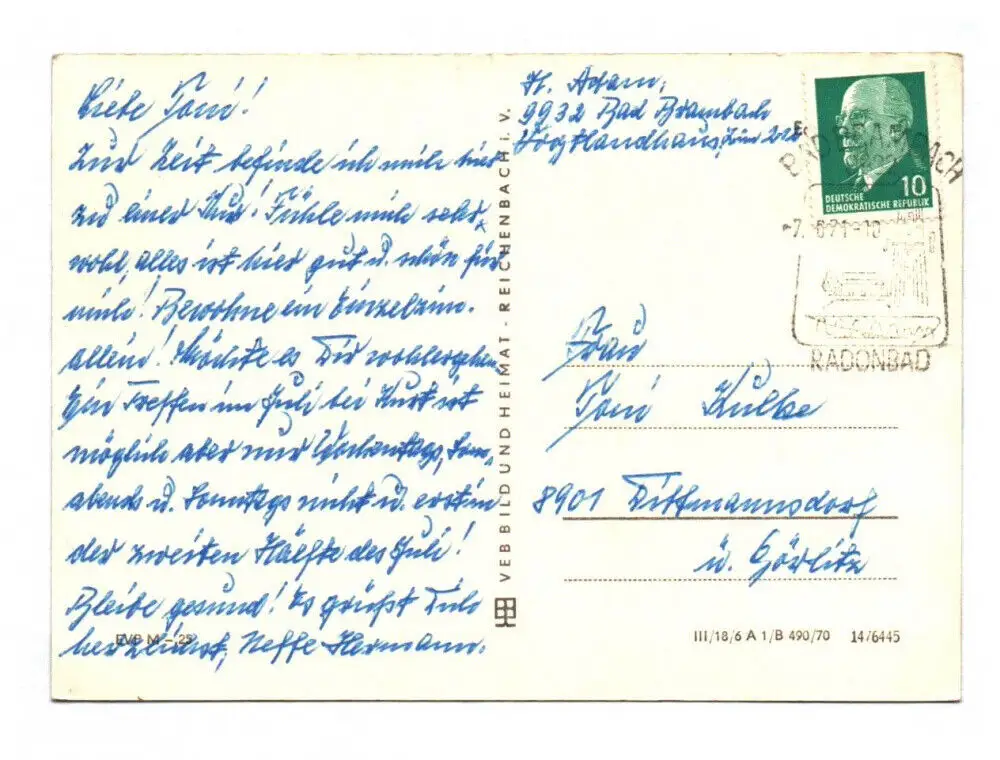 Liebe Toni!
Zur Zeit befinde ich mich hier
zu einer Kur! Fühle mich sehr
wohl, alles ist hier gut u. schön für
mich! Bewohne ein Einzelzim.
allein! Möchte es Dir wohlergehen
Ein Treffen im Juli bei Kurt ist
möglich aber nur Wochentags, Sonn-
abends u. Sonntags nicht u. erst in
der zweiten Hälfte des Juli!
Bleibe gesund! Es grüßt Dich
herzlichst, Neffe Hermann.
EVP M -,25
VEB BILD UND HEIMAT · REICHENBACH i. V.
H. Adam,
9932 Bad Brambach
Vogtlandhaus, Zim 228
10
DEUTSCHE
DEMOKRATISCHE REPUBLIK
BAD BRAMBACH
RADONBAD
Frau
Toni Kulke
8901 Dittmannsdorf
ü. Görlitz
III/18/6 A 1/B 490/70 14/6445